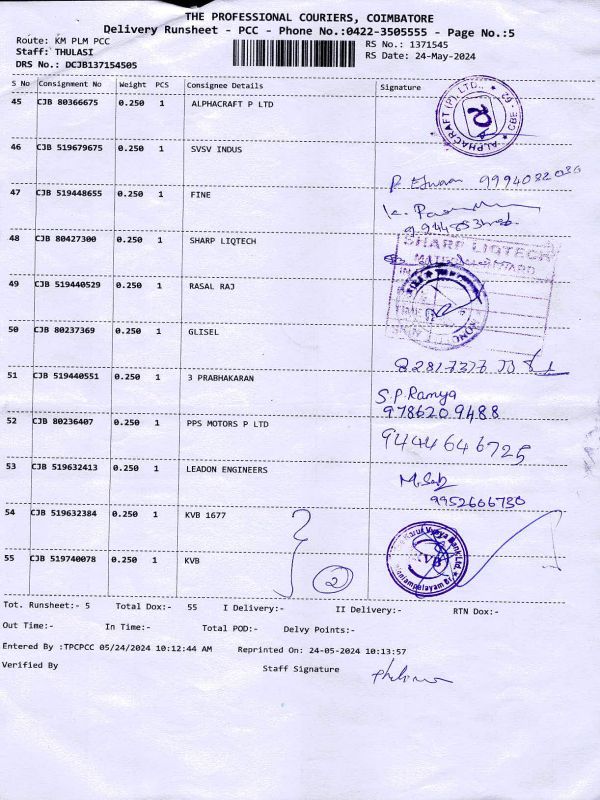 THE PROFESSIONAL COURIERS, COIMBATORE
Delivery Runsheet - PCC - Phone No.:0422-3505555 - Page No.:5
Route: KM PLM PCC
RS No.: 1371545
Staff: THULASI
RS Date: 24-May-2024
DRS No.: DCJB137154505
S No Consignment No Weight PCS Consignee Details Signature
45 CJB 80366675 0.250 1 ALPHACRAFT P LTD
ALPHACRAFT (P) LTD., ★ 29 - CBE
46 CJB 519679675 0.250 1 SVSV INDUS
47 CJB 519448655 0.250 1 FINE
48 CJB 80427300 0.250 1 SHARP LIQTECH
SHARP LIQTECH
49 CJB 519440529 0.250 1 RASAL RAJ
50 CJB 80237369 0.250 1 GLISEL
51 CJB 519440551 0.250 1 3 PRABHAKARAN
S.P.Ramya
9786209488
52 CJB 80236407 0.250 1 PPS MOTORS P LTD
9444646725
53 CJB 519632413 0.250 1 LEADON ENGINEERS
9952606730
54 CJB 519632384 0.250 1 KVB 1677
55 CJB 519740078 0.250 1 KVB
2
KVB
Tot. Runsheet:- 5 Total Dox:- 55 I Delivery:- II Delivery:- RTN Dox:-
Out Time:- In Time:- Total POD:- Delvy Points:-
Entered By :TPCPCC 05/24/2024 10:12:44 AM Reprinted On: 24-05-2024 10:13:57
Verified By Staff Signature